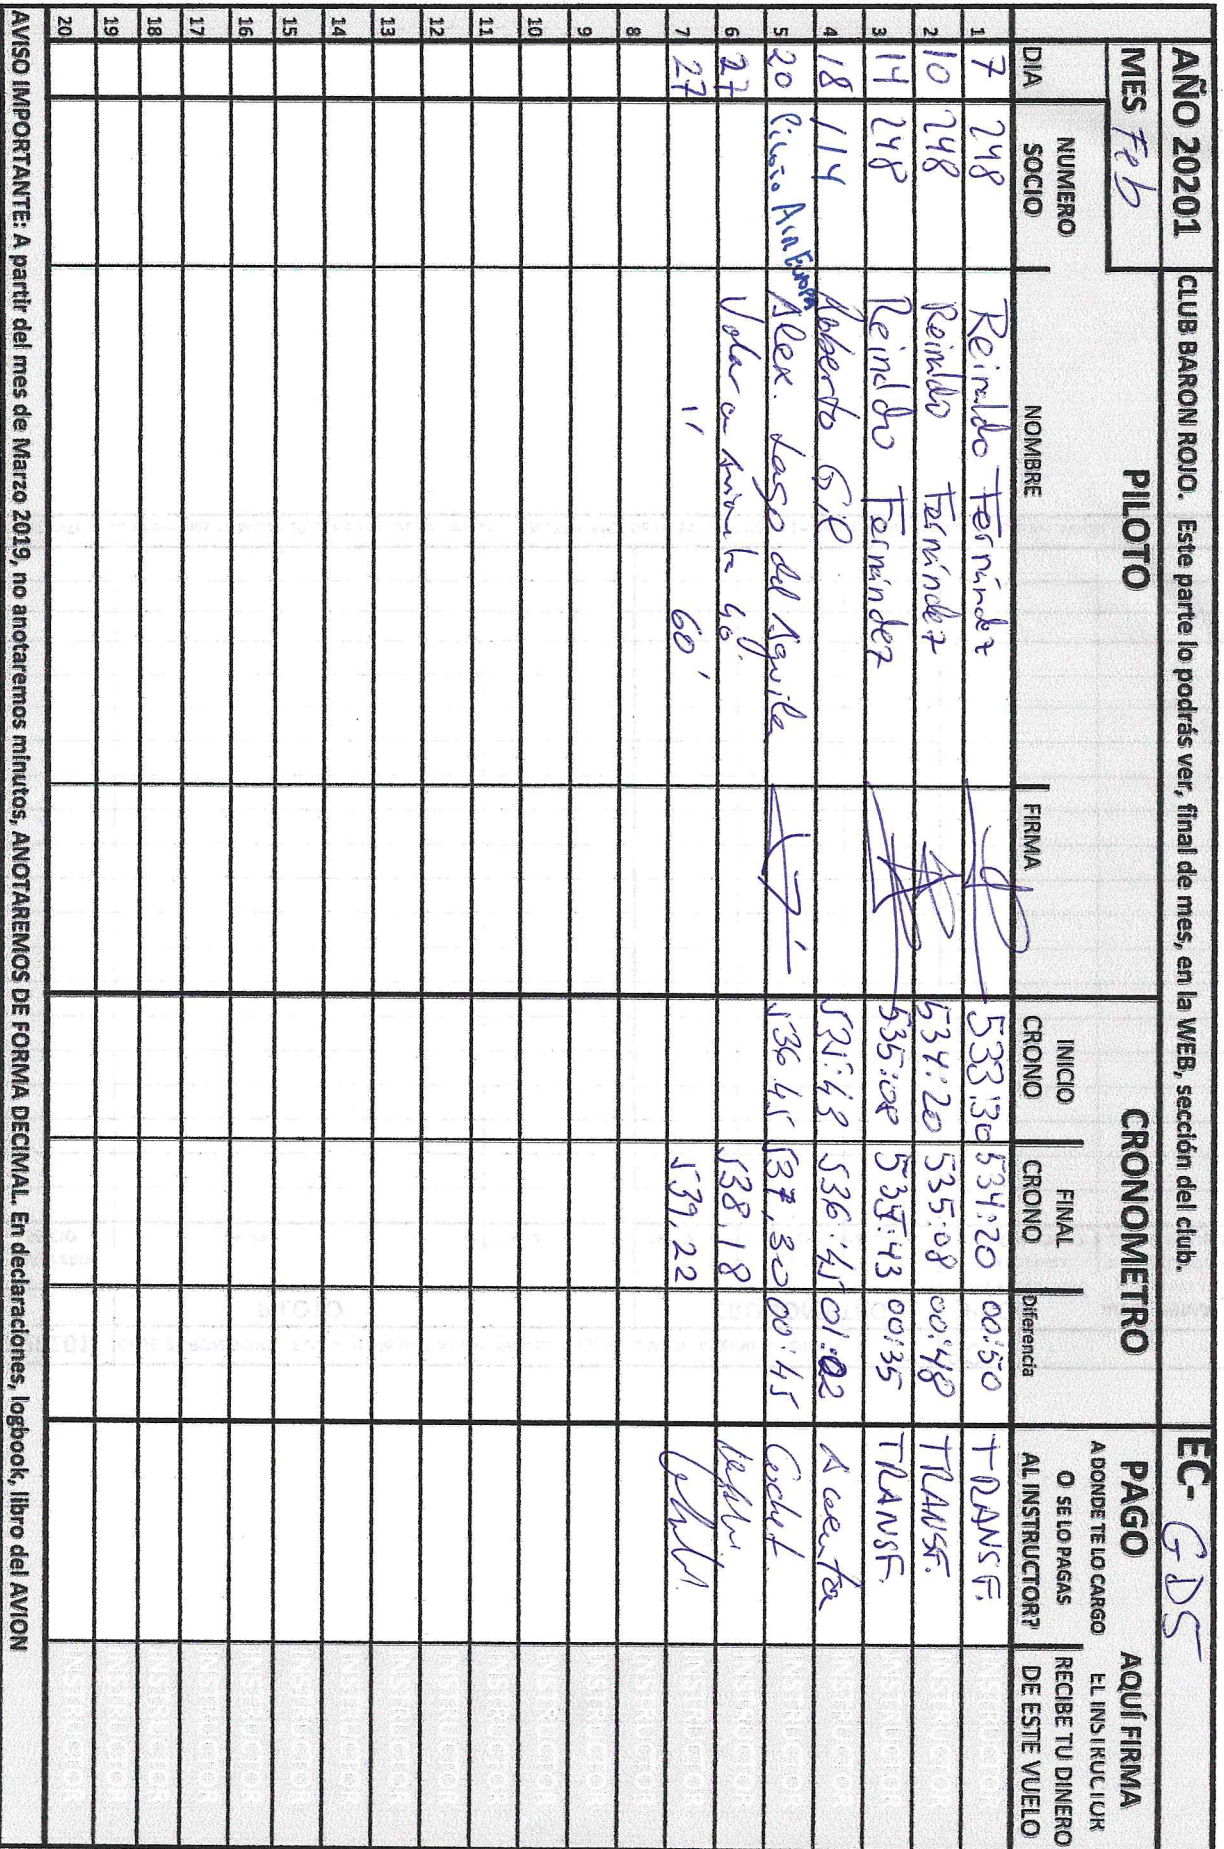 AÑO 20201 CLUB BARON ROJO. Este parte lo podrás ver, final de mes, en la WEB, sección del club. EC- GDS
MES Feb PILOTO CRONOMETRO PAGO AQUÍ FIRMA
A DONDE TE LO CARGO EL INSTRUCTOR
NUMERO INICIO FINAL O SE LO PAGAS RECIBE TU DINERO
DIA SOCIO NOMBRE FIRMA CRONO CRONO Diferencia AL INSTRUCTOR? DE ESTE VUELO
1 7 248 Reinaldo Fernández 533:30 534:20 00:50 TRANSF. INSTRUCTOR
2 10 248 Reinaldo Fernández 534:20 535:08 00:48 TRANSF. INSTRUCTOR
3 14 248 Reinaldo Fernández 535:08 535:43 00:35 TRANSF. INSTRUCTOR
4 18 114 Roberto Gil 535:43 536:45 01:02 A cuenta INSTRUCTOR
5 20 Piloto Air Europa Alex. Lago del Aguila 536.45 537,30 00:45 INSTRUCTOR
6 27 Volar en Avioneta 40'. 538,18 INSTRUCTOR
7 27 " 60' 539,22 INSTRUCTOR
8 INSTRUCTOR
9 INSTRUCTOR
10 INSTRUCTOR
11 INSTRUCTOR
12 INSTRUCTOR
13 INSTRUCTOR
14 INSTRUCTOR
15 INSTRUCTOR
16 INSTRUCTOR
17 INSTRUCTOR
18 INSTRUCTOR
19 INSTRUCTOR
20 INSTRUCTOR
AVISO IMPORTANTE: A partir del mes de Marzo 2019, no anotaremos minutos, ANOTAREMOS DE FORMA DECIMAL. En declaraciones, logbook, libro del AVION